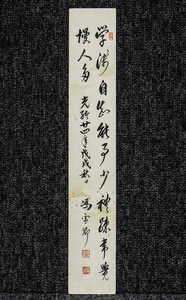 学浅自知能事少禮疎常覺
慢人多
光緒廿四年戊戌秋日
馮雪卿